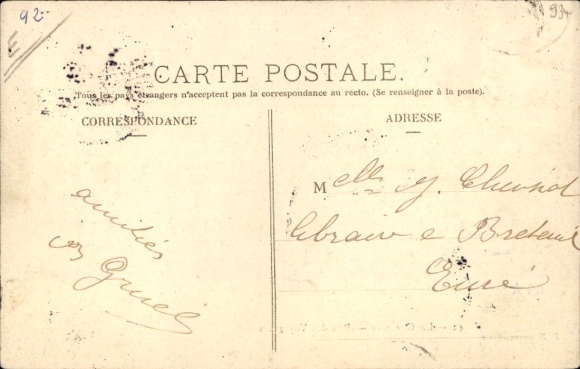 92
E
93
CARTE POSTALE.
Tous les pays étrangers n'acceptent pas la correspondance au recto. (Se renseigner à la poste).
CORRESPONDANCE
ADRESSE
amitiés
Melle
libraire a Breteuil
Eure